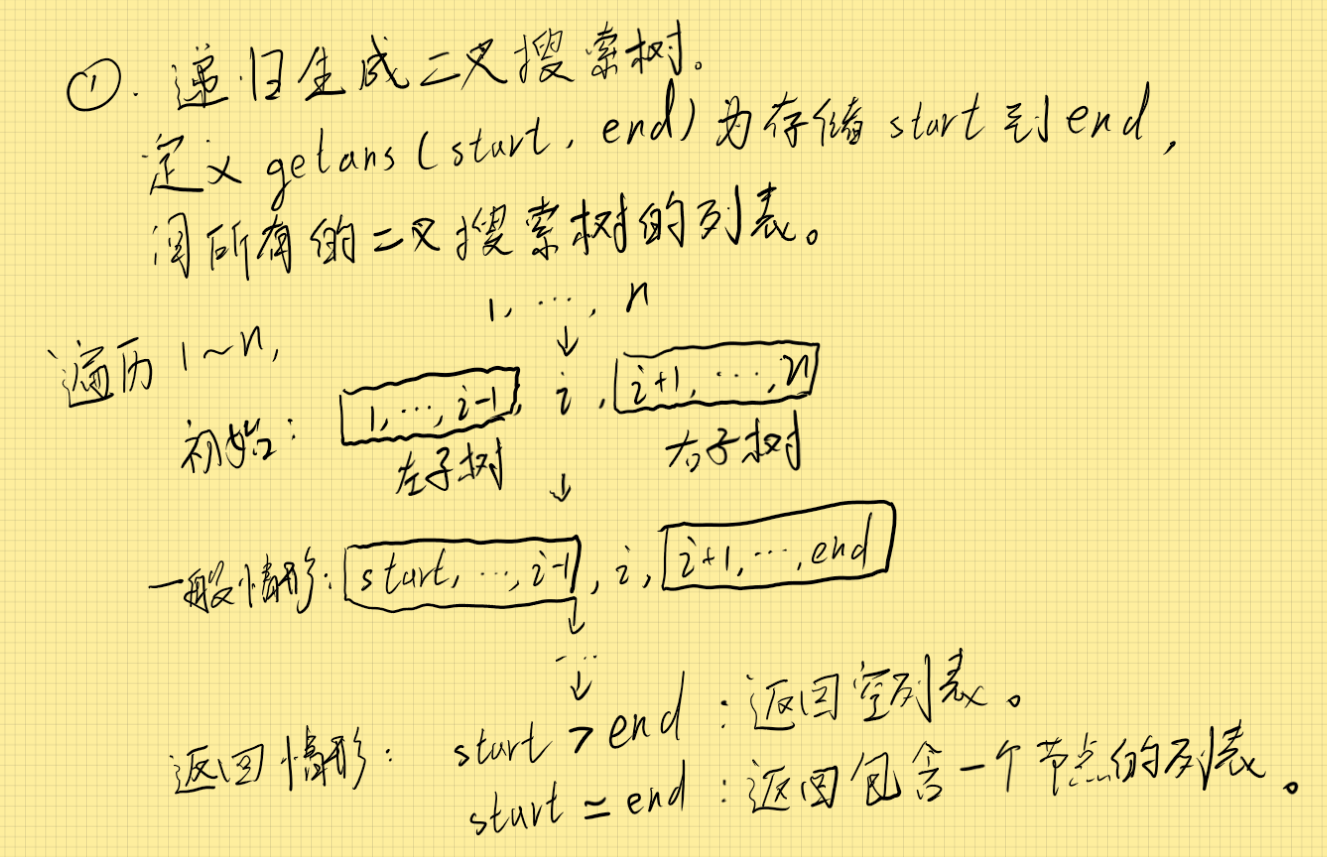 ①. 递归生成二叉搜索树。
定义 getans(start, end) 为存储 start 到 end,
间所有的二叉搜索树的列表。
1, …, n
↓
遍历 1~n,
初始: 1, …, i-1, i, i+1, …, n
左子树 右子树
↓
一般情形: start, …, i-1, i, i+1, …, end
↓
…
↓
返回情形: start > end : 返回空列表。
start = end : 返回包含一个节点的列表。